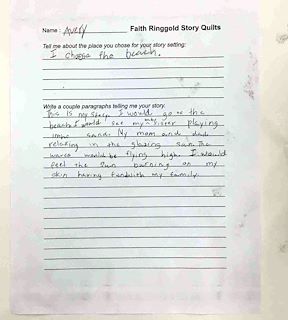 Name: Avery Faith Ringgold Story Quilts
Tell me about the place you chose for your story setting:
I choose the beach.
Write a couple paragraphs telling me your story.
This is my story. I would go to the
beach I would see my sister playing
in the sand. My mom and dad
relaxing in the glazing sun. The
waves would be flying high. I would
feel the sun burning on my
skin having fun with my family.